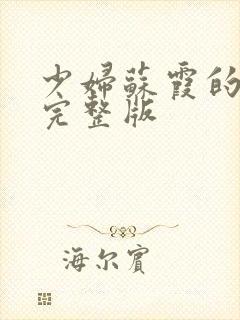 少婦蘇霞的
完整版
海尔賓